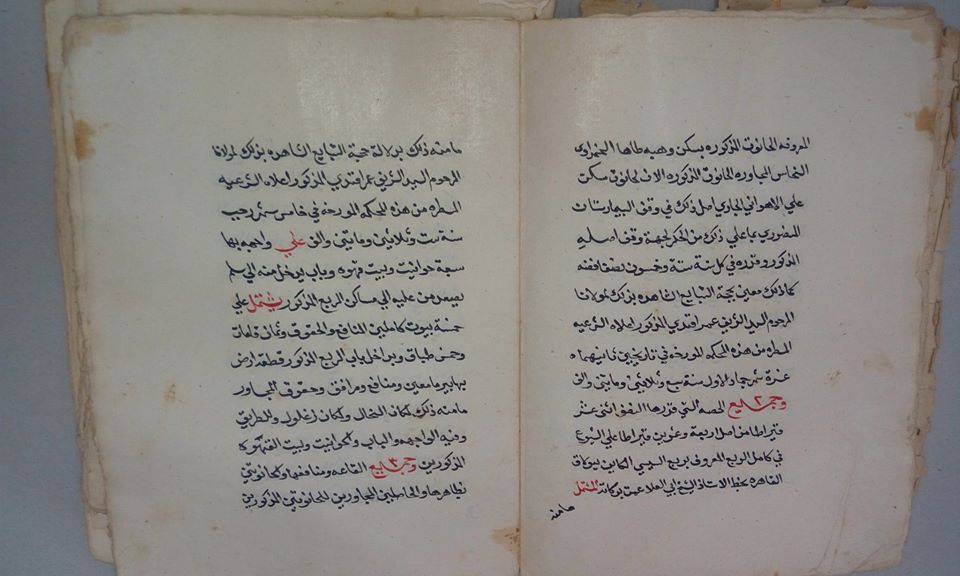 المعروفه الحانوت المذكوره بسكن وهبه طاها
النحاس المجاوره للحانوت المذكوره الان لحانوت سكن
علي الاهواني الجاري اصل ذلك في وقف البيمارستان
المنصوري بما علي ذلك من الحكر لجهة وقف اصليه
المذكور وقدره في كل سنة ستة وخمسون نصفا فضه
كما ذلك معين بحجة التبايع الشاهده بذلك لمولانا
المرحوم السيد الشريف عمر افندي المذكور اعلاه الشرعيه
المسطره من هذه المحكمه المورخه في تاريخين ثانيهما
غرة شهر جماد الاول سنة سبع وثلاثين ومايتين والف
وجميع الحصه التي قدرها النصف اثني عشر
قيراطا من اصل اربعة وعشرين قيراطا علي الشيوع
في كامل الربع المعروف بربع السيسي الكاين ببولاق
القاهره بخط الاستاذ الشيخ ابي العلا عمت بركاته المشتمل
ما منه ذلك بدلالة حجة التبايع الشاهده بذلك لمولانا
المرحوم السيد الشريف عمر افندي المذكور اعلاه الشرعيه
المسطره من هذه المحكمه المورخه في خامس شهر رجب
سنة ست وثلاثين ومايتين والف علي واجهه بها
سبعة حوانيت وبيت قهوه وباب يدخل منه الي سلم
يصعد من عليه الي مساكن الربع المذكور يشتمل علي
خمسة بيوت كاملين المنافع والحقوق وثمان قاعات
وخمس طباق وبداخل باب الربع المذكور قطعة ارض
بها بير ما معين ومنافع ومرافق وحقوق المجاور
ما منه ذلك لمكان النحال ولمكان زغلول وللطريق
وفيه الواجهه والباب والحوانيت وبيت القهوه
المذكورين وجميع القاعه ومنافعها والحانوتين
بظاهرها والحاصلين المجاورين للحانوتين المذكورين